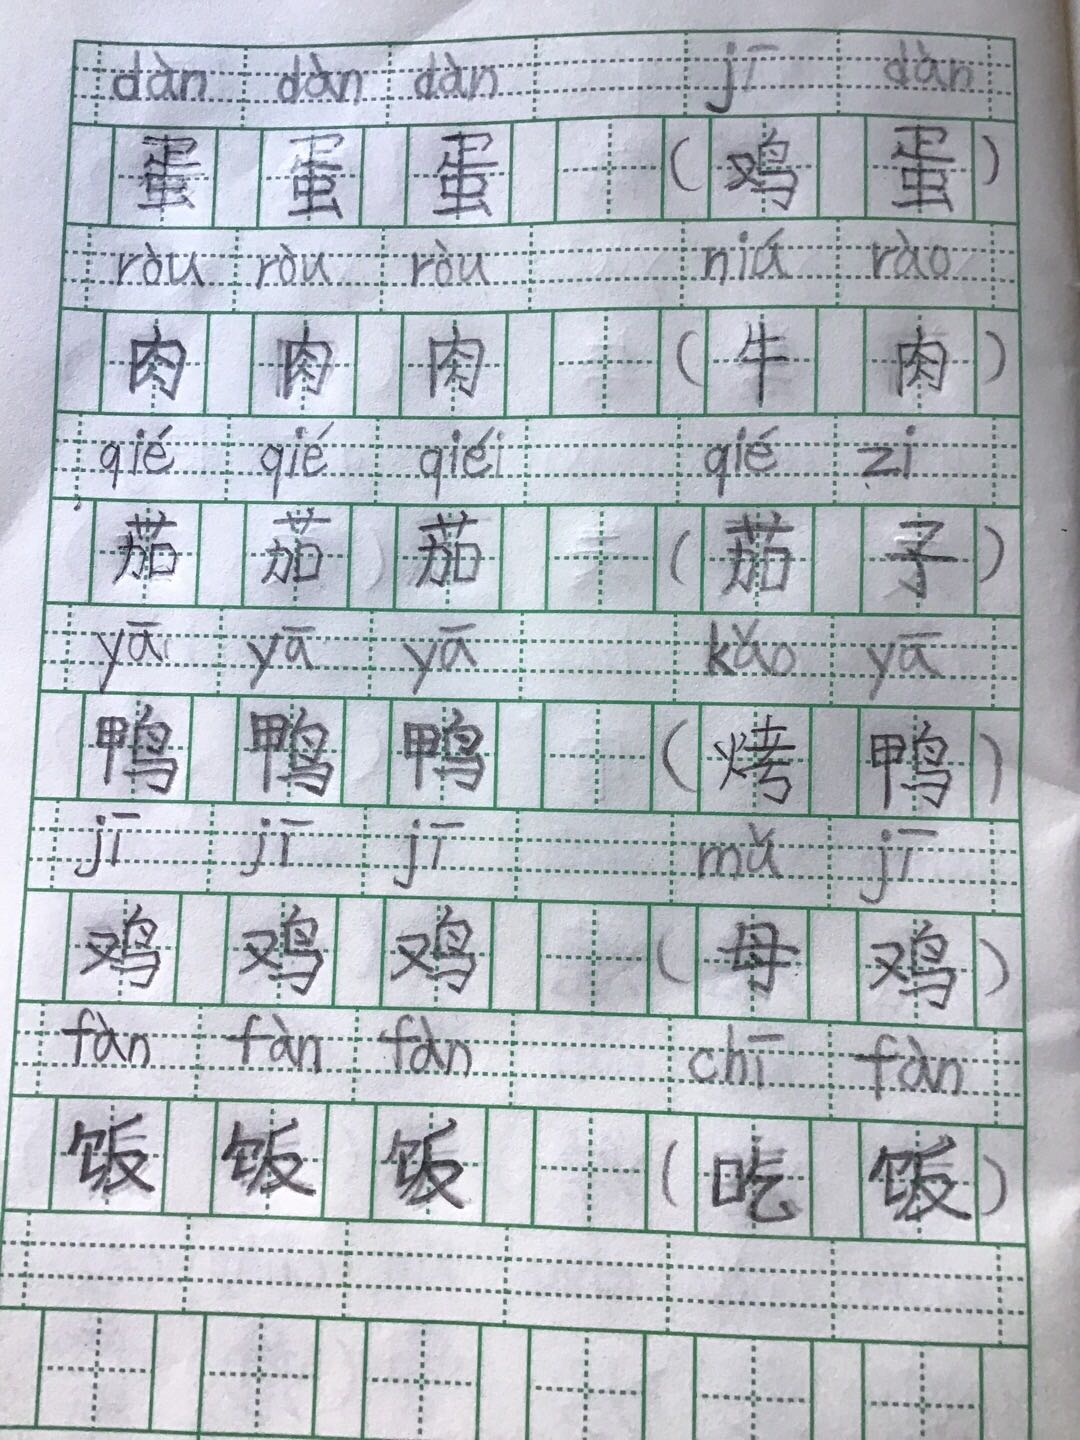 dàn dàn dàn jī dàn
蛋 蛋 蛋 (鸡 蛋)
ròu ròu ròu niú ròo
肉 肉 肉 (牛 肉)
qié qié qiéi qié zi
茄 茄 茄 (茄 子)
yā yā yā kǎo yā
鸭 鸭 鸭 (烤 鸭)
jī jī jī mǔ jī
鸡 鸡 鸡 (母 鸡)
fàn fàn fàn chī fàn
饭 饭 饭 (吃 饭)